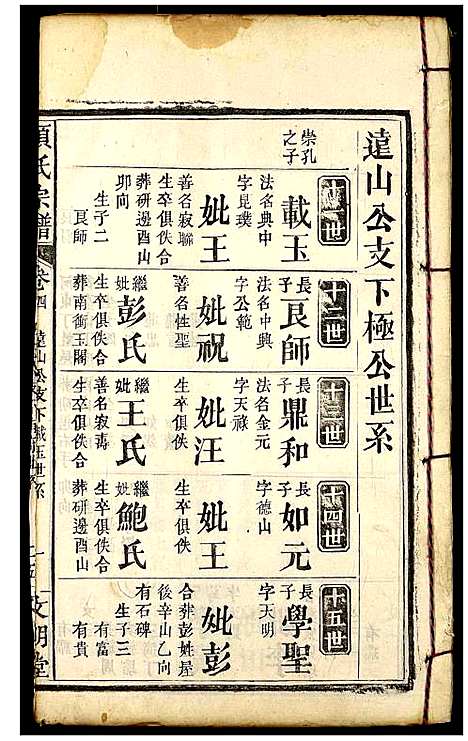 遠山公支下極公世系
十一世
崇孔之子
載玉
字昆璞
法名典中
妣王
善名寂聯
生卒俱佚合
葬研邊酉山
卯向
生子二
艮師
十二世
長子
艮師
字公範
法名中興
妣祝
善名性聖
繼妣彭氏
生卒俱佚合
葬南衝王閣
十三世
長子
鼎和
字天祿
法名金元
妣汪
生卒俱佚
繼妣王氏
善名寂壽
生卒俱佚合
十四世
長子
如元
字德山
妣王
生卒俱佚
繼妣鮑氏
生卒俱佚合
葬研邊酉山
十五世
長子
學聖
字天明
妣彭
合葬彭姓屋
後辛山乙向
有石碑
生子三
有富
有貴
氏宗譜
卷四
遠山公支下載玉世系
文明堂